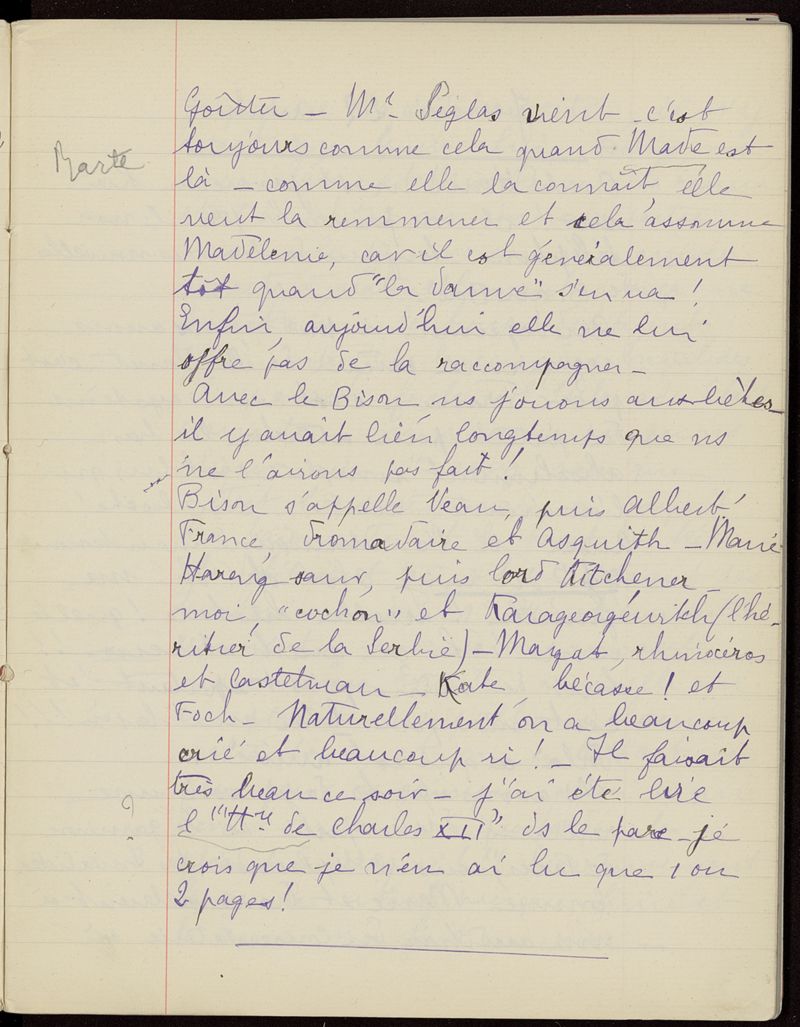 Goûter – Mr Séglas vient – c'est
toujours comme cela quand Made est
Marte
là – comme elle la connaît elle
veut la remmener et cela assomme
Madeleine, car il est généralement
tôt quand "la dame" s'en va !
Enfin aujourd'hui elle ne lui
offre pas de la raccompagner –
Avec le Bison ns jouons aux bêtes
il y avait bien longtemps que ns
ne l'avions pas fait !
Bison s'appelle Veau, puis Albert
France, dromadaire et Asquith – Marie
Hareng saur, puis lord Kitchener
moi, "cochon" et Karageorgévitch (l'hé-
ritier de la Serbie) – Mayat, rhinocéros
et Castelnau – Kate, bécasse ! et
Foch – Naturellement on a beaucoup
crié et beaucoup ri ! – Il faisait
très beau ce soir – j'ai été lire
?
l'"Hre de Charles XII" ds le parc – je
crois que je n'en ai lu que 1 ou
2 pages !